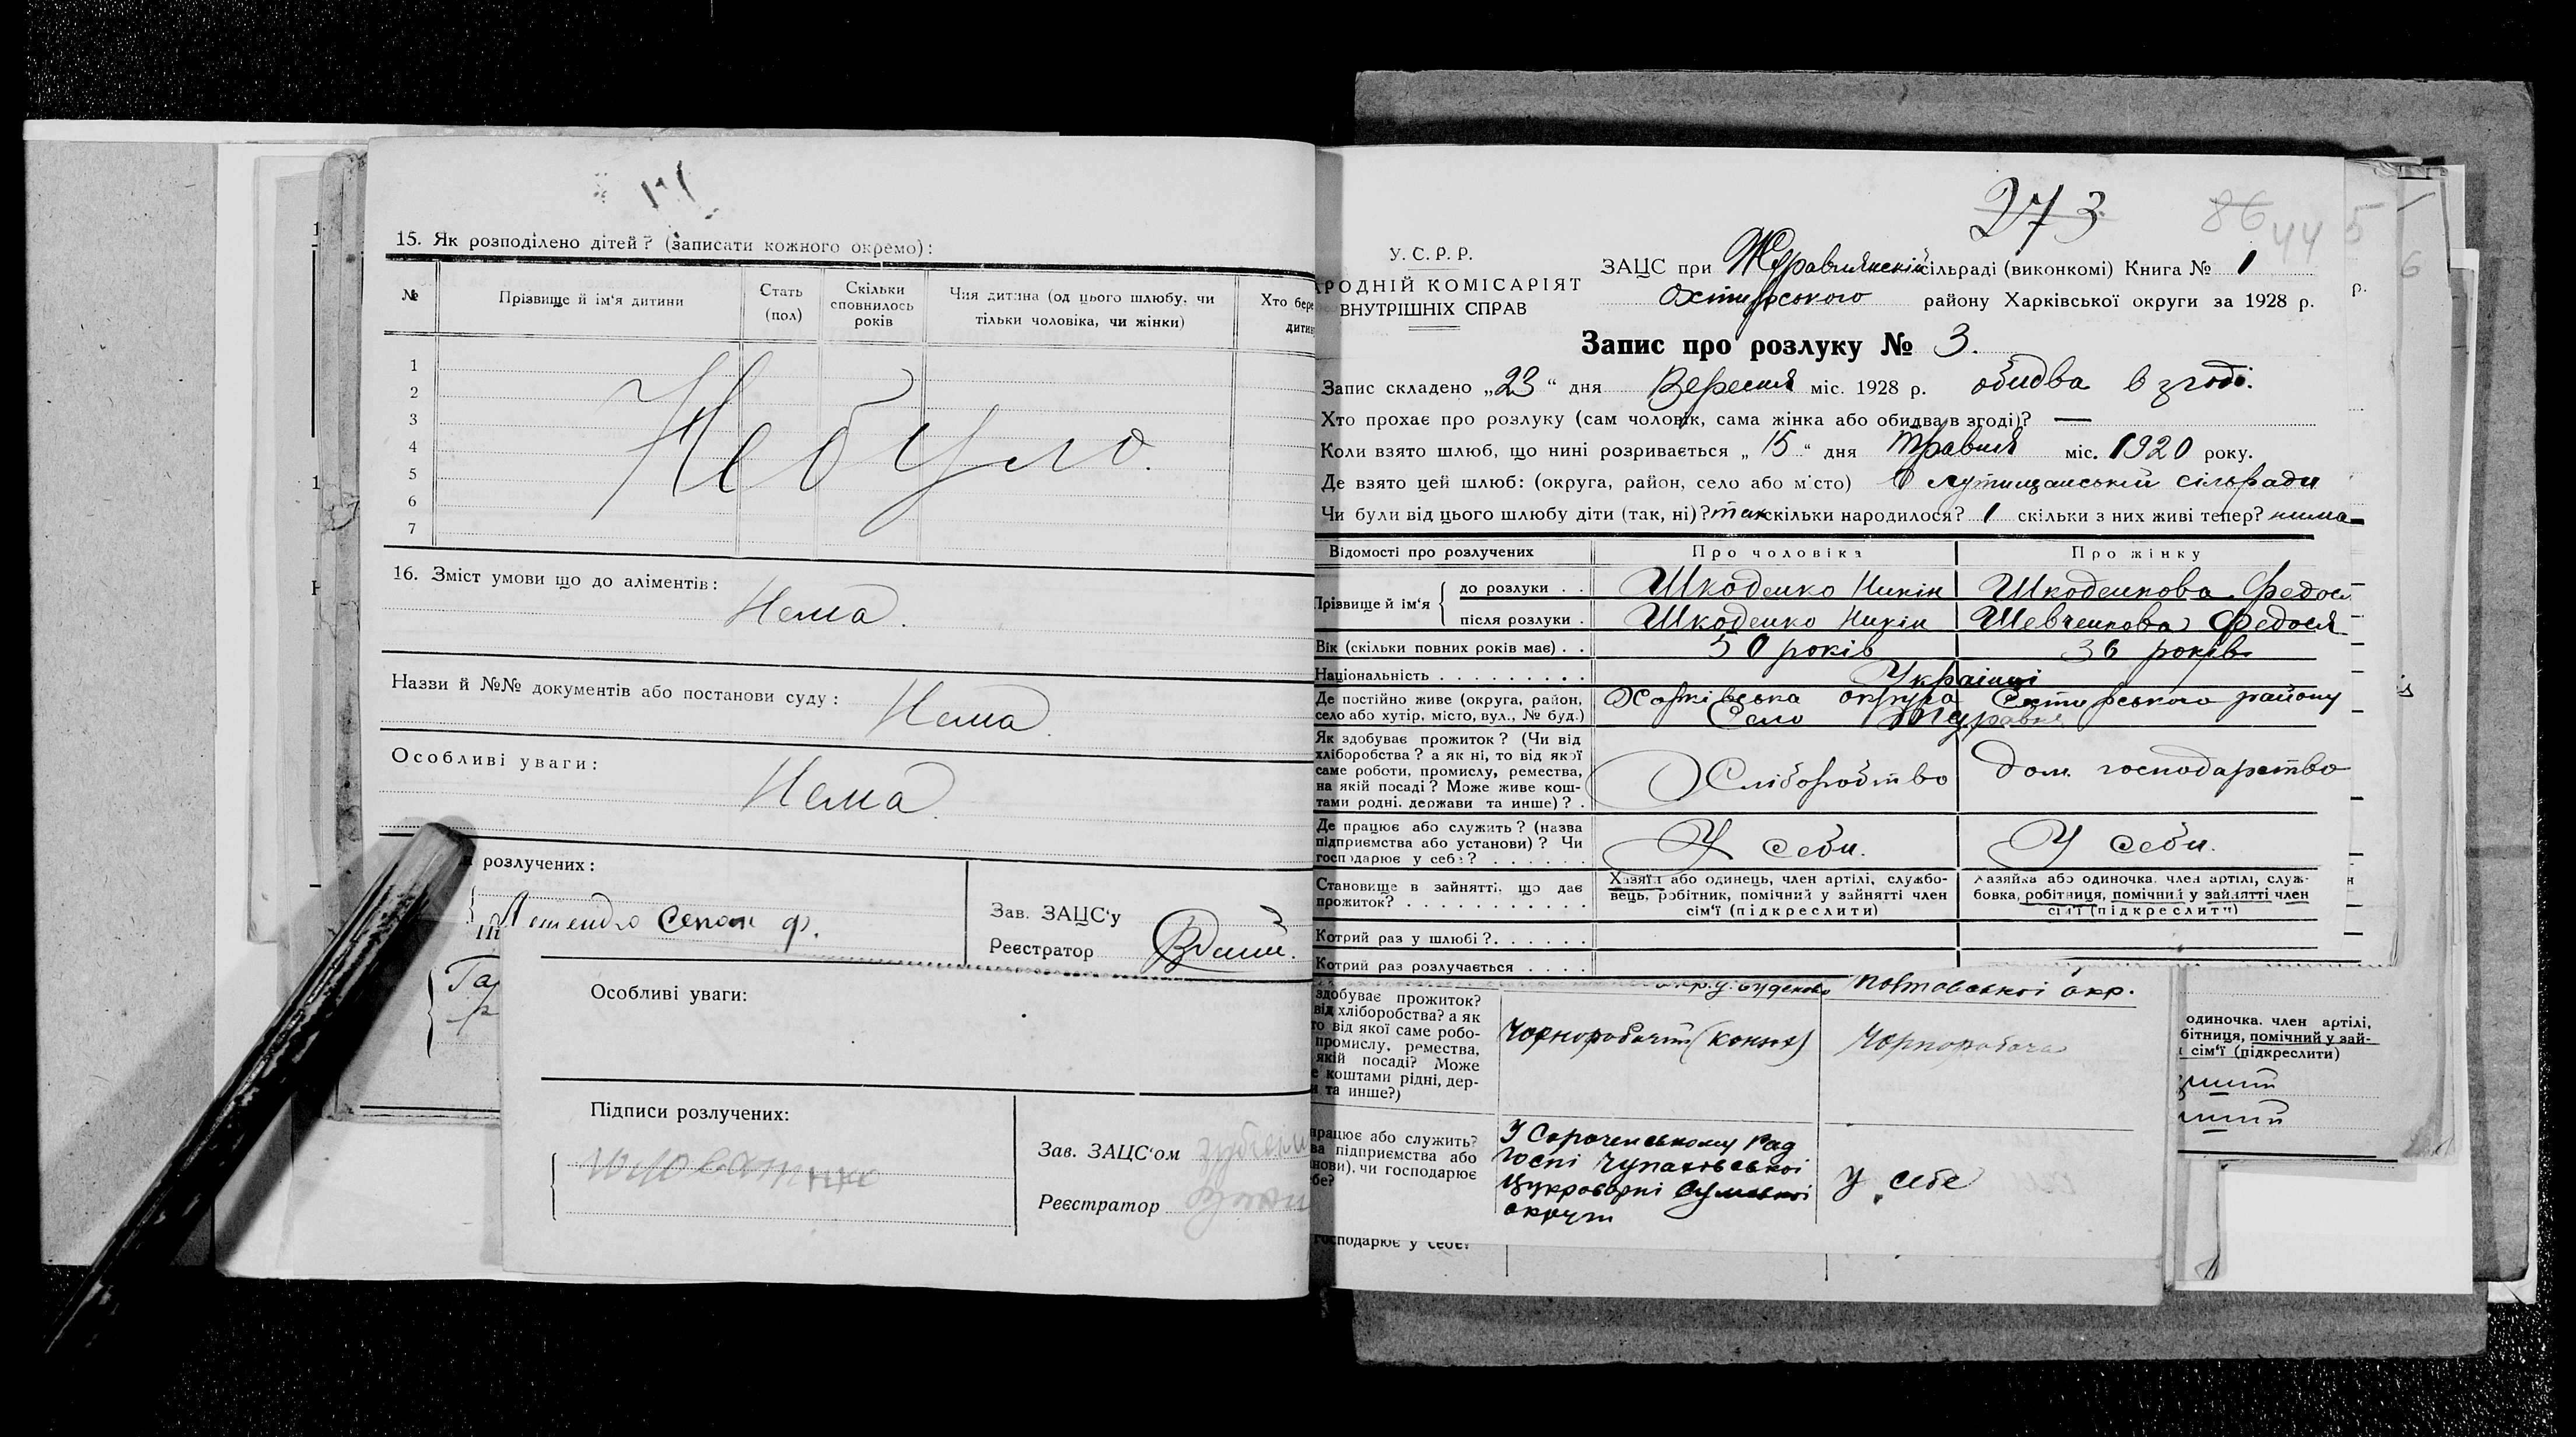 15. Як розподілено дітей? (записати кожного окремо):
№ Прізвище й ім'я дитини Стать (пол) Скільки сповнилось років Чия дитина (од цього шлюбу, чи тільки чоловіка, чи жінки) Хто бере дитин
1
2
3
4
5
6
7
Не було.
16. Зміст умови що до аліментів:
Нема.
Назви й №№ документів або постанови суду:
Нема.
Особливі уваги:
Нема.
розлучених:
Зав. ЗАЦС'у
Реєстратор
Особливі уваги:
Підписи розлучених:
Зав. ЗАЦС'ом
Реєстратор
273
86 44 5
6
У. С. Р. Р.
РОДНІЙ КОМІСАРІЯТ
ВНУТРІШНІХ СПРАВ
ЗАЦС при Журавлянській сільраді (виконкомі) Книга № 1
Охтирського району Харківської округи за 1928 р.
р.
Запис про розлуку № 3.
Запис складено „23“ дня Вересня міс. 1928 р. обидва в згоді.
Хто прохає про розлуку (сам чоловік, сама жінка або обидва в згоді)? —
Коли взято шлюб, що нині розривається „15“ дня Травня міс. 1920 року.
Де взято цей шлюб: (округа, район, село або місто) В лутищанській сільради
Чи були від цього шлюбу діти (так, ні)? так скільки народилося? 1 скільки з них живі тепер? нима
Відомості про розлучених Про чоловіка Про жінку
Прізвище й ім'я
до розлуки . . Шкоденко Никін Шкоденкова Федос
після розлуки . Шкоденко Никін Шевченкова Федося
Вік (скільки повних років має) . . 50 років 36 років
Національність . . . . . . . . . Українці
Де постійно живе (округа, район, село або хутір, місто, вул., № буд.) Харківська округа Охтирського району
Село Журавне
Як здобуває прожиток? (Чи від хліборобства? а як ні, то від якої саме роботи, промислу, ремества, на якій посаді? Може живе коштами родні, держави та инше)? . Хліборобтво дом. господарство
Де працює або служить? (назва підприємства або установи)? Чи господарює у себе? . . . . . . У себи. У себи.
Становище в зайнятті, що дає прожиток? . . . . . . . . . .
Хазяїн або одинець, член артілі, службовець, робітник, помічний у зайнятті член сім'ї (підкреслити)
Хазяйка або одиночка, член артілі, службовка, робітниця, помічний у зайнятті член сім'ї (підкреслити)
Котрий раз у шлюбі? . . . . . .
Котрий раз розлучається . . . .
Полтавської окр.
здобуває прожиток?
від хліборобства? а як
то від якої саме робо-
промислу, ремества,
якій посаді? Може
е коштами рідні, дер-
и та инше?)
Чорноробочий (конюх) Чорноробоча
працює або служить?
ва підприємства або
нови), чи господарює
бе?
У Сороченському Рад
госпі Чупахівської
Цукроварні Сумської
округи
У себе
господарює у себе?
одиночка, член артілі,
бітниця, помічний у зай-
і сім'ї (підкреслити)